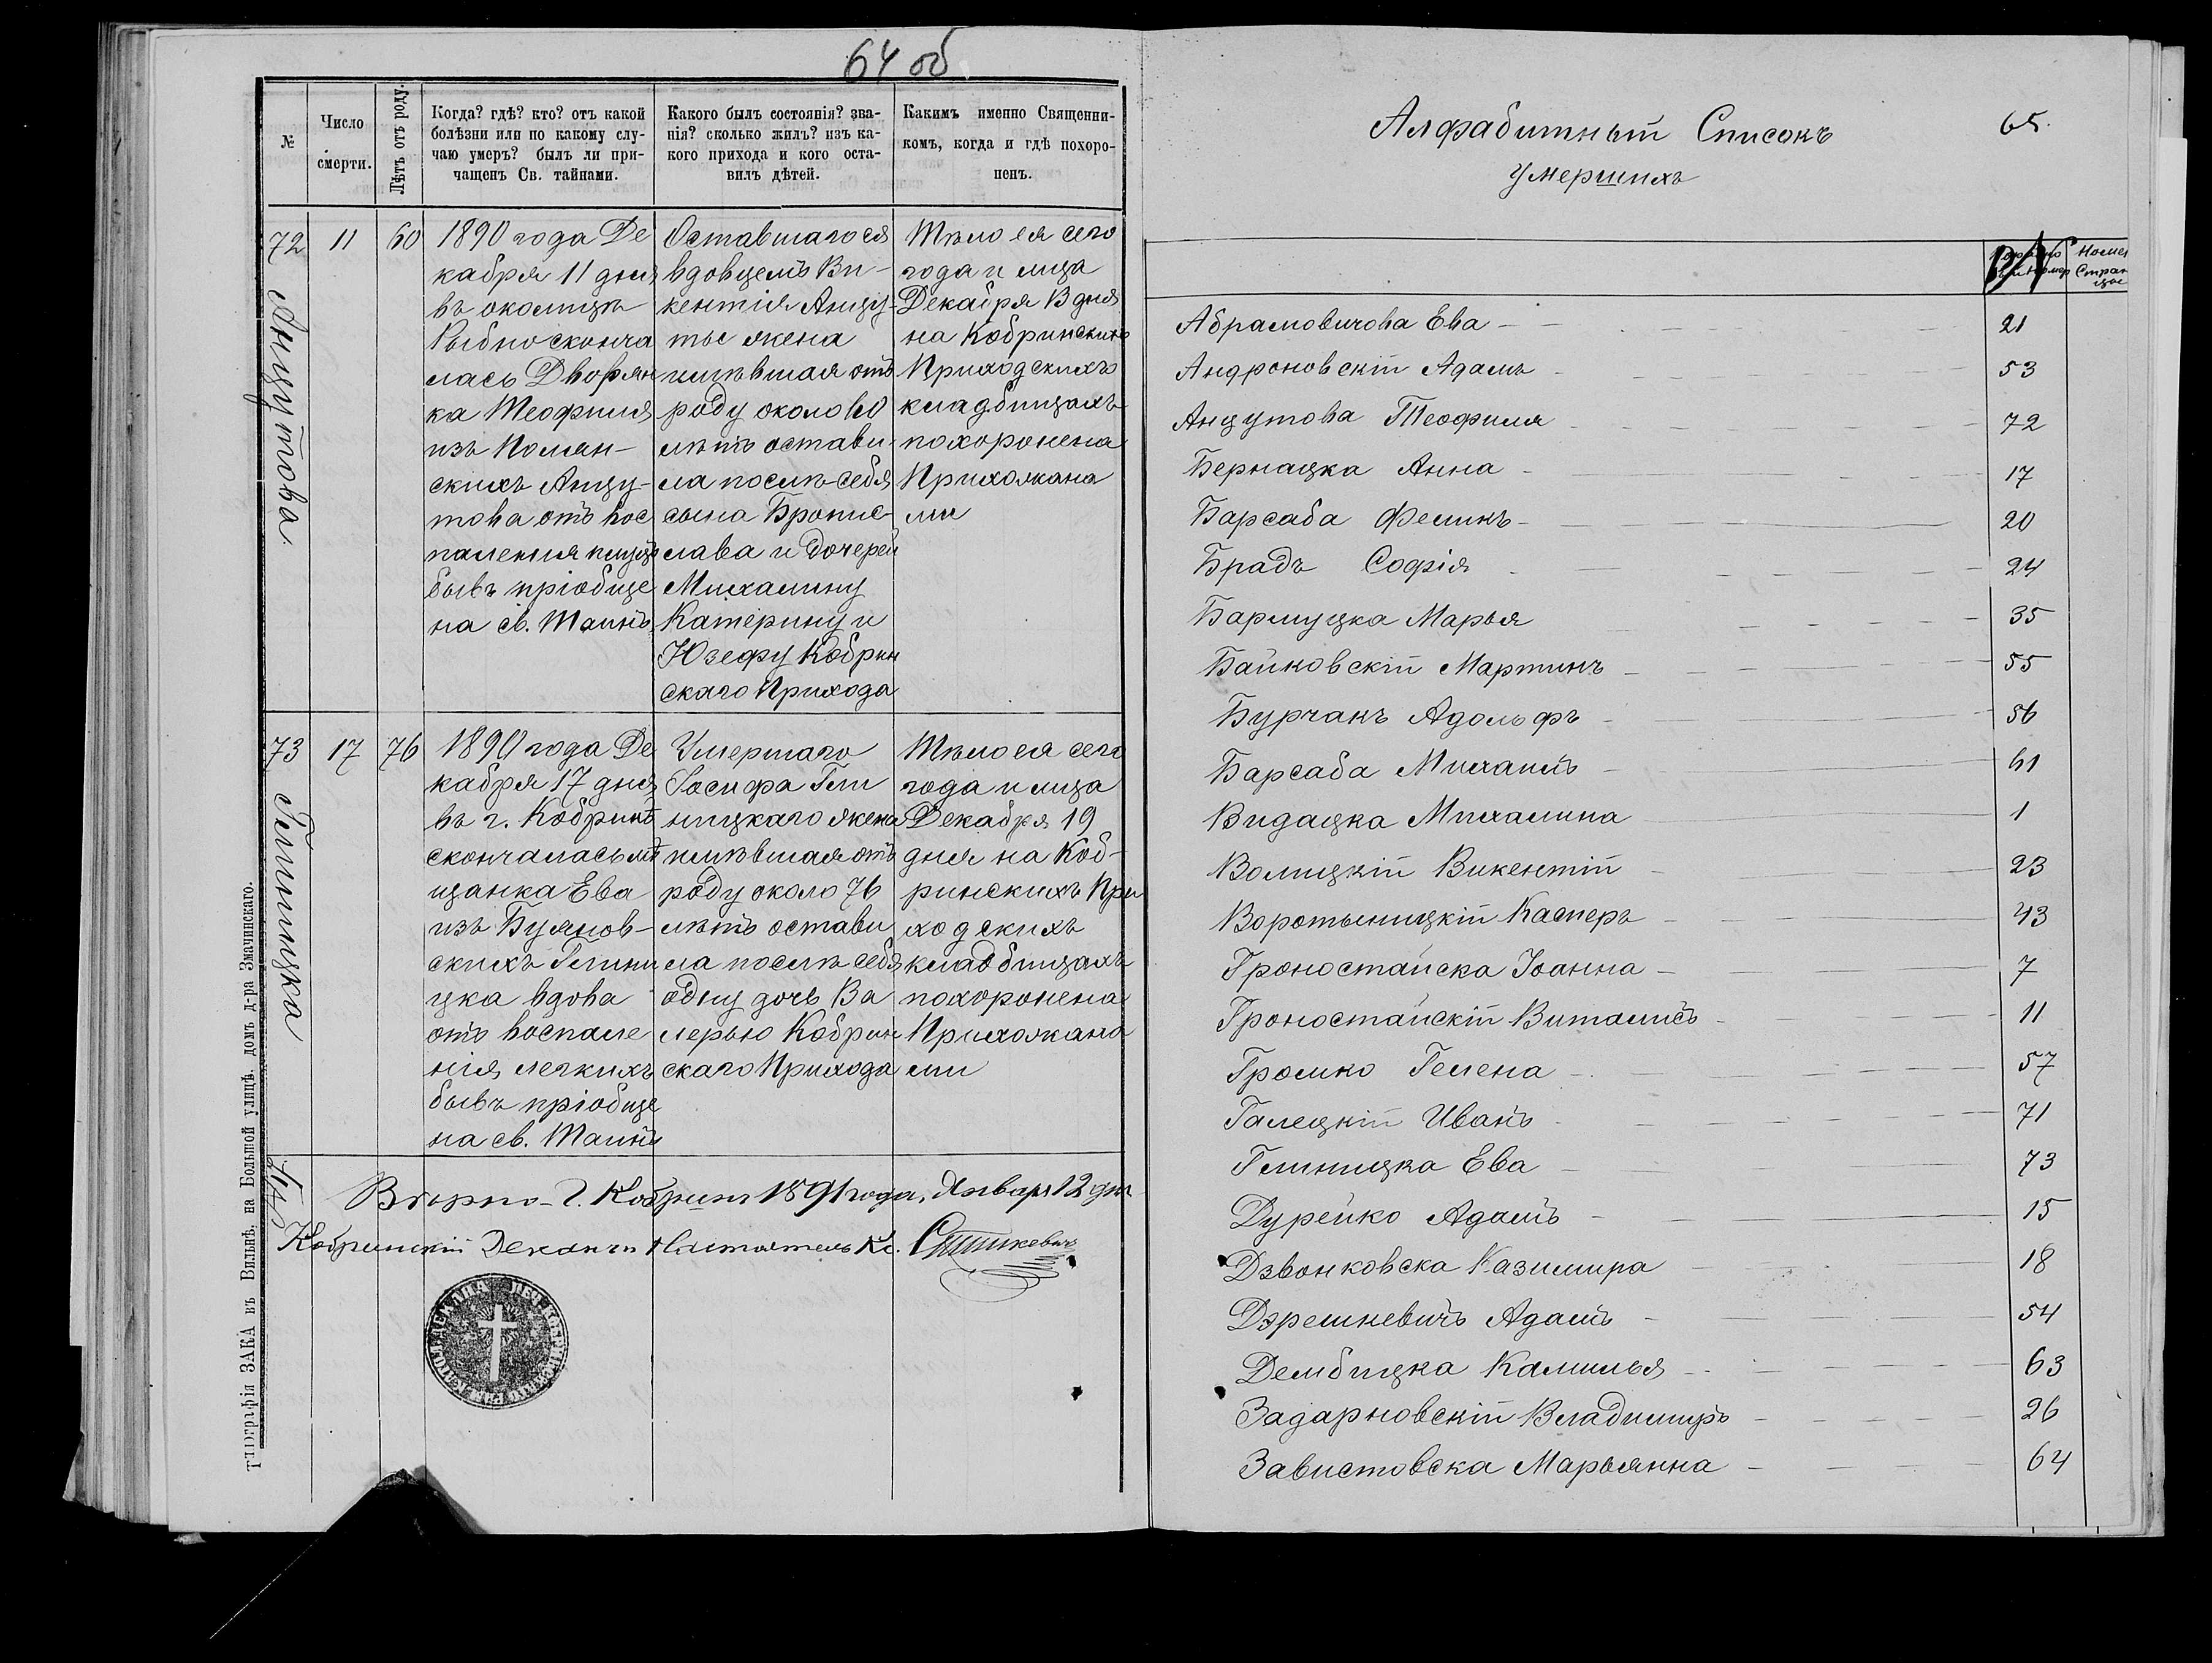 64 об.
№
Число смерти.
Лѣтъ отъ роду.
Когда? гдѣ? кто? отъ какой болѣзни или по какому случаю умеръ? былъ ли причащенъ Св. тайнами.
Какого былъ состоянія? званія? сколько жилъ? изъ какого прихода и кого оставилъ дѣтей.
Какимъ именно Священникомъ, когда и гдѣ похороненъ.
72
Анцутова
11
60
1890 года Де
кабря 11 дня
въ околицѣ
Рыбно сконча
лась Дворян
ка Теофиля
изъ Полян-
скихъ Анцу-
това отъ вос
паленія
бывъ пріобще
на св. Таинъ
Оставшагося
вдовцемъ Ви-
кентія Анцу-
ты жена
имѣвшая отъ
роду около 60
лѣтъ остави
ла послѣ себя
сына Бронис-
лава и дочерей
Михалину
Катерину и
Юзефу Кобрин
скаго Прихода
Тѣло ея сего
года и м̃ца
Декабря 13 дня
на Кобринскихъ
Приходскихъ
кладбищахъ
похоронена
Прихожана
ми
73
Глиницка
17
76
1890 года Де
кабря 17 дня
въ г. Кобринѣ
скончалась мѣ
щанка Ева
изъ Буянов-
скихъ Глини
цка вдова
отъ воспале
нія легкихъ
бывъ пріобще
на св. Таинъ
Умершаго
Іосифа Гли
ницкаго жена
имѣвшая отъ
роду около 76
лѣтъ остави
ла послѣ себя
одну дочь Ва
лерью Кобрин
скаго Прихода
Тѣло ея сего
года и м̃ца
Декабря 19
дня на Коб-
ринскихъ При
ходскихъ
кладбищахъ
похоронена
Прихожана
ми
Вѣрно. Г. Кобринъ 1891 года, Января 12 дня
Кобринскій Деканъ и Настоятель Кс.
Типографія ЗАКА въ Вильнѣ, на Большой улицѣ, домъ д-ра Змачинскаго.
65.
Алфабитный Списокъ
умершихъ
Абрамовичова Ева 21
Андроновскій Адамъ 53
Анцутова Теофиля 72
Бернацка Анна 17
Барсаба Феликъ 20
Брадъ Софія 24
Бармуцка Марья 35
Байковскій Мартинъ 55
Бурчакъ Адольфъ 56
Барсаба Михаилъ 61
Видацка Михалина 1
Волицкій Викентій 23
Воротыницкій Касперъ 43
Гроностайска Іоанна 7
Гроностайскій Виталисъ 11
Громко Гелена 57
Галецкій Иванъ 71
Глиницка Ева 73
Дурейко Адамъ 15
Дзвонковска Казимира 18
Дэрешкевичъ Адамъ 54
Дембицка Камилья 63
Задарновскій Владимиръ 26
Завистовска Марьянна 64